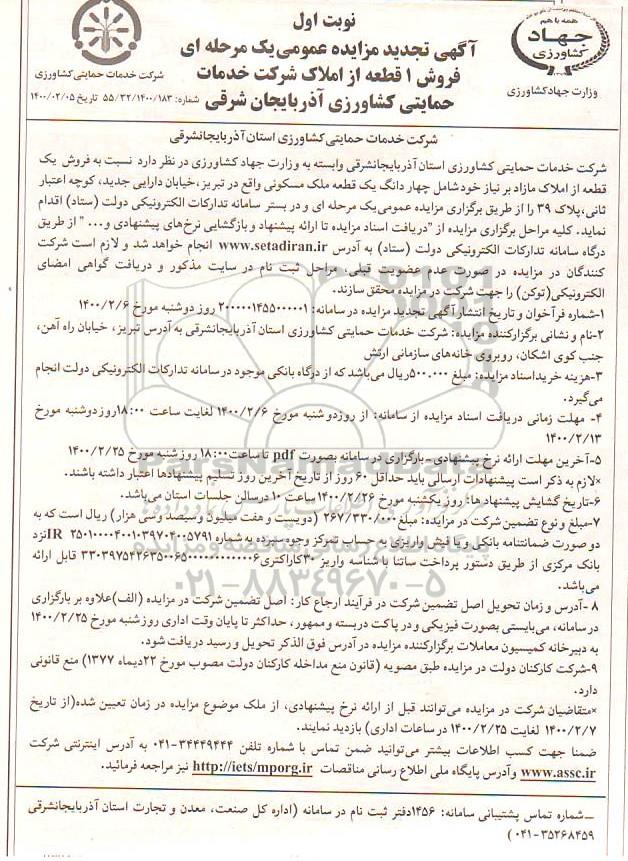 نوبت اول
آگهی تجدید مزایده عمومی یک مرحله ای
فروش ۱ قطعه از املاک شرکت خدمات
حمایتی کشاورزی آذربایجان شرقی
همه با هم
جهاد
کشاورزی
وزارت جهاد کشاورزی
شرکت خدمات حمایتی کشاورزی
شماره: ۵۵/۳۲/۱۴۰۰/۱۸۳ تاریخ ۱۴۰۰/۰۲/۰۵
شرکت خدمات حمایتی کشاورزی استان آذربایجانشرقی
شرکت خدمات حمایتی کشاورزی استان آذربایجانشرقی وابسته به وزارت جهاد کشاورزی در نظر دارد نسبت به فروش یک
قطعه از املاک مازاد بر نیاز خود شامل چهار دانگ یک قطعه ملک مسکونی واقع در تبریز،خیابان دارایی جدید، کوچه اعتبار
ثانی،پلاک ۳۹ را از طریق برگزاری مزایده عمومی یک مرحله ای و در بستر سامانه تدارکات الکترونیکی دولت (ستاد) اقدام
نماید. کلیه مراحل برگزاری مزایده از "دریافت اسناد مزایده تا ارائه پیشنهاد و بازگشایی نرخ های پیشنهادی و... " از طریق
درگاه سامانه تدارکات الکترونیکی دولت (ستاد) به آدرس www.setadiran.ir انجام خواهد شد و لازم است شرکت
کنندگان در مزایده در صورت عدم عضویت قبلی مراحل ثبت نام در سایت مذکور و دریافت گواهی امضای
الکترونیکی(توکن) را جهت شرکت در مزایده محقق سازند.
۱-شماره فرآخوان و تاریخ انتشار آگهی تجدید مزایده در سامانه: ۲۰۰۰۰۰۱۴۵۵۰۰۰۰۰۱ روز دوشنبه مورخ ۱۴۰۰/۲/۶
۲-نام و نشانی برگزارکننده مزایده: شرکت خدمات حمایتی کشاورزی استان آذربایجانشرقی به آدرس تبریز، خیابان راه آهن،
جنب کوی اشکان، روبروی خانه های سازمانی ارتش
۳-هزینه خرید اسناد مزایده: مبلغ ۵۰۰،۰۰۰ ریال می باشد که از درگاه بانکی موجود در سامانه تدارکات الکترونیکی دولت انجام
می گیرد.
۴- مهلت زمانی دریافت اسناد مزایده از سامانه: از روز دو شنبه مورخ ۱۴۰۰/۲/۶ لغایت ساعت ۱۸:۰۰ روز دوشنبه مورخ
۱۴۰۰/۲/۱۳
۵-آخرین مهلت ارائه نرخ پیشنهادی -بارگزاری در سامانه بصورت pdf تا ساعت ۱۸:۰۰ روز شنبه مورخ ۱۴۰۰/۲/۲۵
×لازم به ذکر است پیشنهادات ارسالی باید حداقل ۶۰ روز از تاریخ آخرین روز تسلیم پیشنهادها اعتبار داشته باشند.
۶-تاریخ گشایش پیشنهادها: روز یکشنبه مورخ ۱۴۰۰/۲/۲۶ ساعت ۱۰ در سالن جلسات استان می باشد.
۷-مبلغ و نوع تضمین شرکت در مزایده: مبلغ ۲۶۷/۳۳۰/۰۰۰ (دویست و هفت میلیون و سیصد و سی هزار) ریال است که به
دو صورت ضمانتنامه بانکی و یا فیش واریزی به حساب تمرکز وجوه سپرده به شماره IR ۲۵۰۱۰۰۰۰۴۰۰۱۰۳۹۷۰۴۰۰۵۷۹۱ نزد
بانک مرکزی از طریق دستور پرداخت ساتنا با شناسه واریز ۳۰ کاراکتری قابل ارائه
می باشد.
۸ -آدرس و زمان تحویل اصل تضمین شرکت در فرآیند ارجاع کار: اصل تضمین شرکت در مزایده (الف)علاوه بر بارگزاری
در سامانه، می بایستی بصورت فیزیکی و در پاکت در بسته و ممهور، حداکثر تا پایان وقت اداری روز شنبه مورخ ۱۴۰۰/۲/۲۵
به دبیرخانه کمیسیون معاملات برگزارکننده مزایده در آدرس فوق الذکر تحویل و رسید دریافت شود.
۹-شرکت کارکنان دولت در مزایده طبق مصوبه (قانون منع مداخله کارکنان دولت مصوب مورخ ۲۲دیماه ۱۳۷۷) منع قانونی
دارد.
×متقاضیان شرکت در مزایده می توانند قبل از ارائه نرخ پیشنهادی، از ملک موضوع مزایده در زمان تعیین شده(از تاریخ
۱۴۰۰/۲/۷ لغایت ۱۴۰۰/۲/۲۵ در ساعات اداری) بازدید نمایند.
ضمنا جهت کسب اطلاعات بیشتر می توانید ضمن تماس با شماره تلفن ۳۴۴۴۹۴۴۴-۰۴۱ به آدرس اینترنتی شرکت
www.assc.ir و آدرس پایگاه ملی اطلاع رسانی مناقصات http://iets/mporg.ir نیز مراجعه فرمائید.
-شماره تماس پشتیبانی سامانه: ۱۴۵۶دفتر ثبت نام در سامانه (اداره کل صنعت، معدن و تجارت استان آذربایجانشرقی
۰۴۱-۳۵۲۶۸۴۵۹ )
ParsNamadData
۰۲۱-۸۸۳۴۹۶۷۰-۵